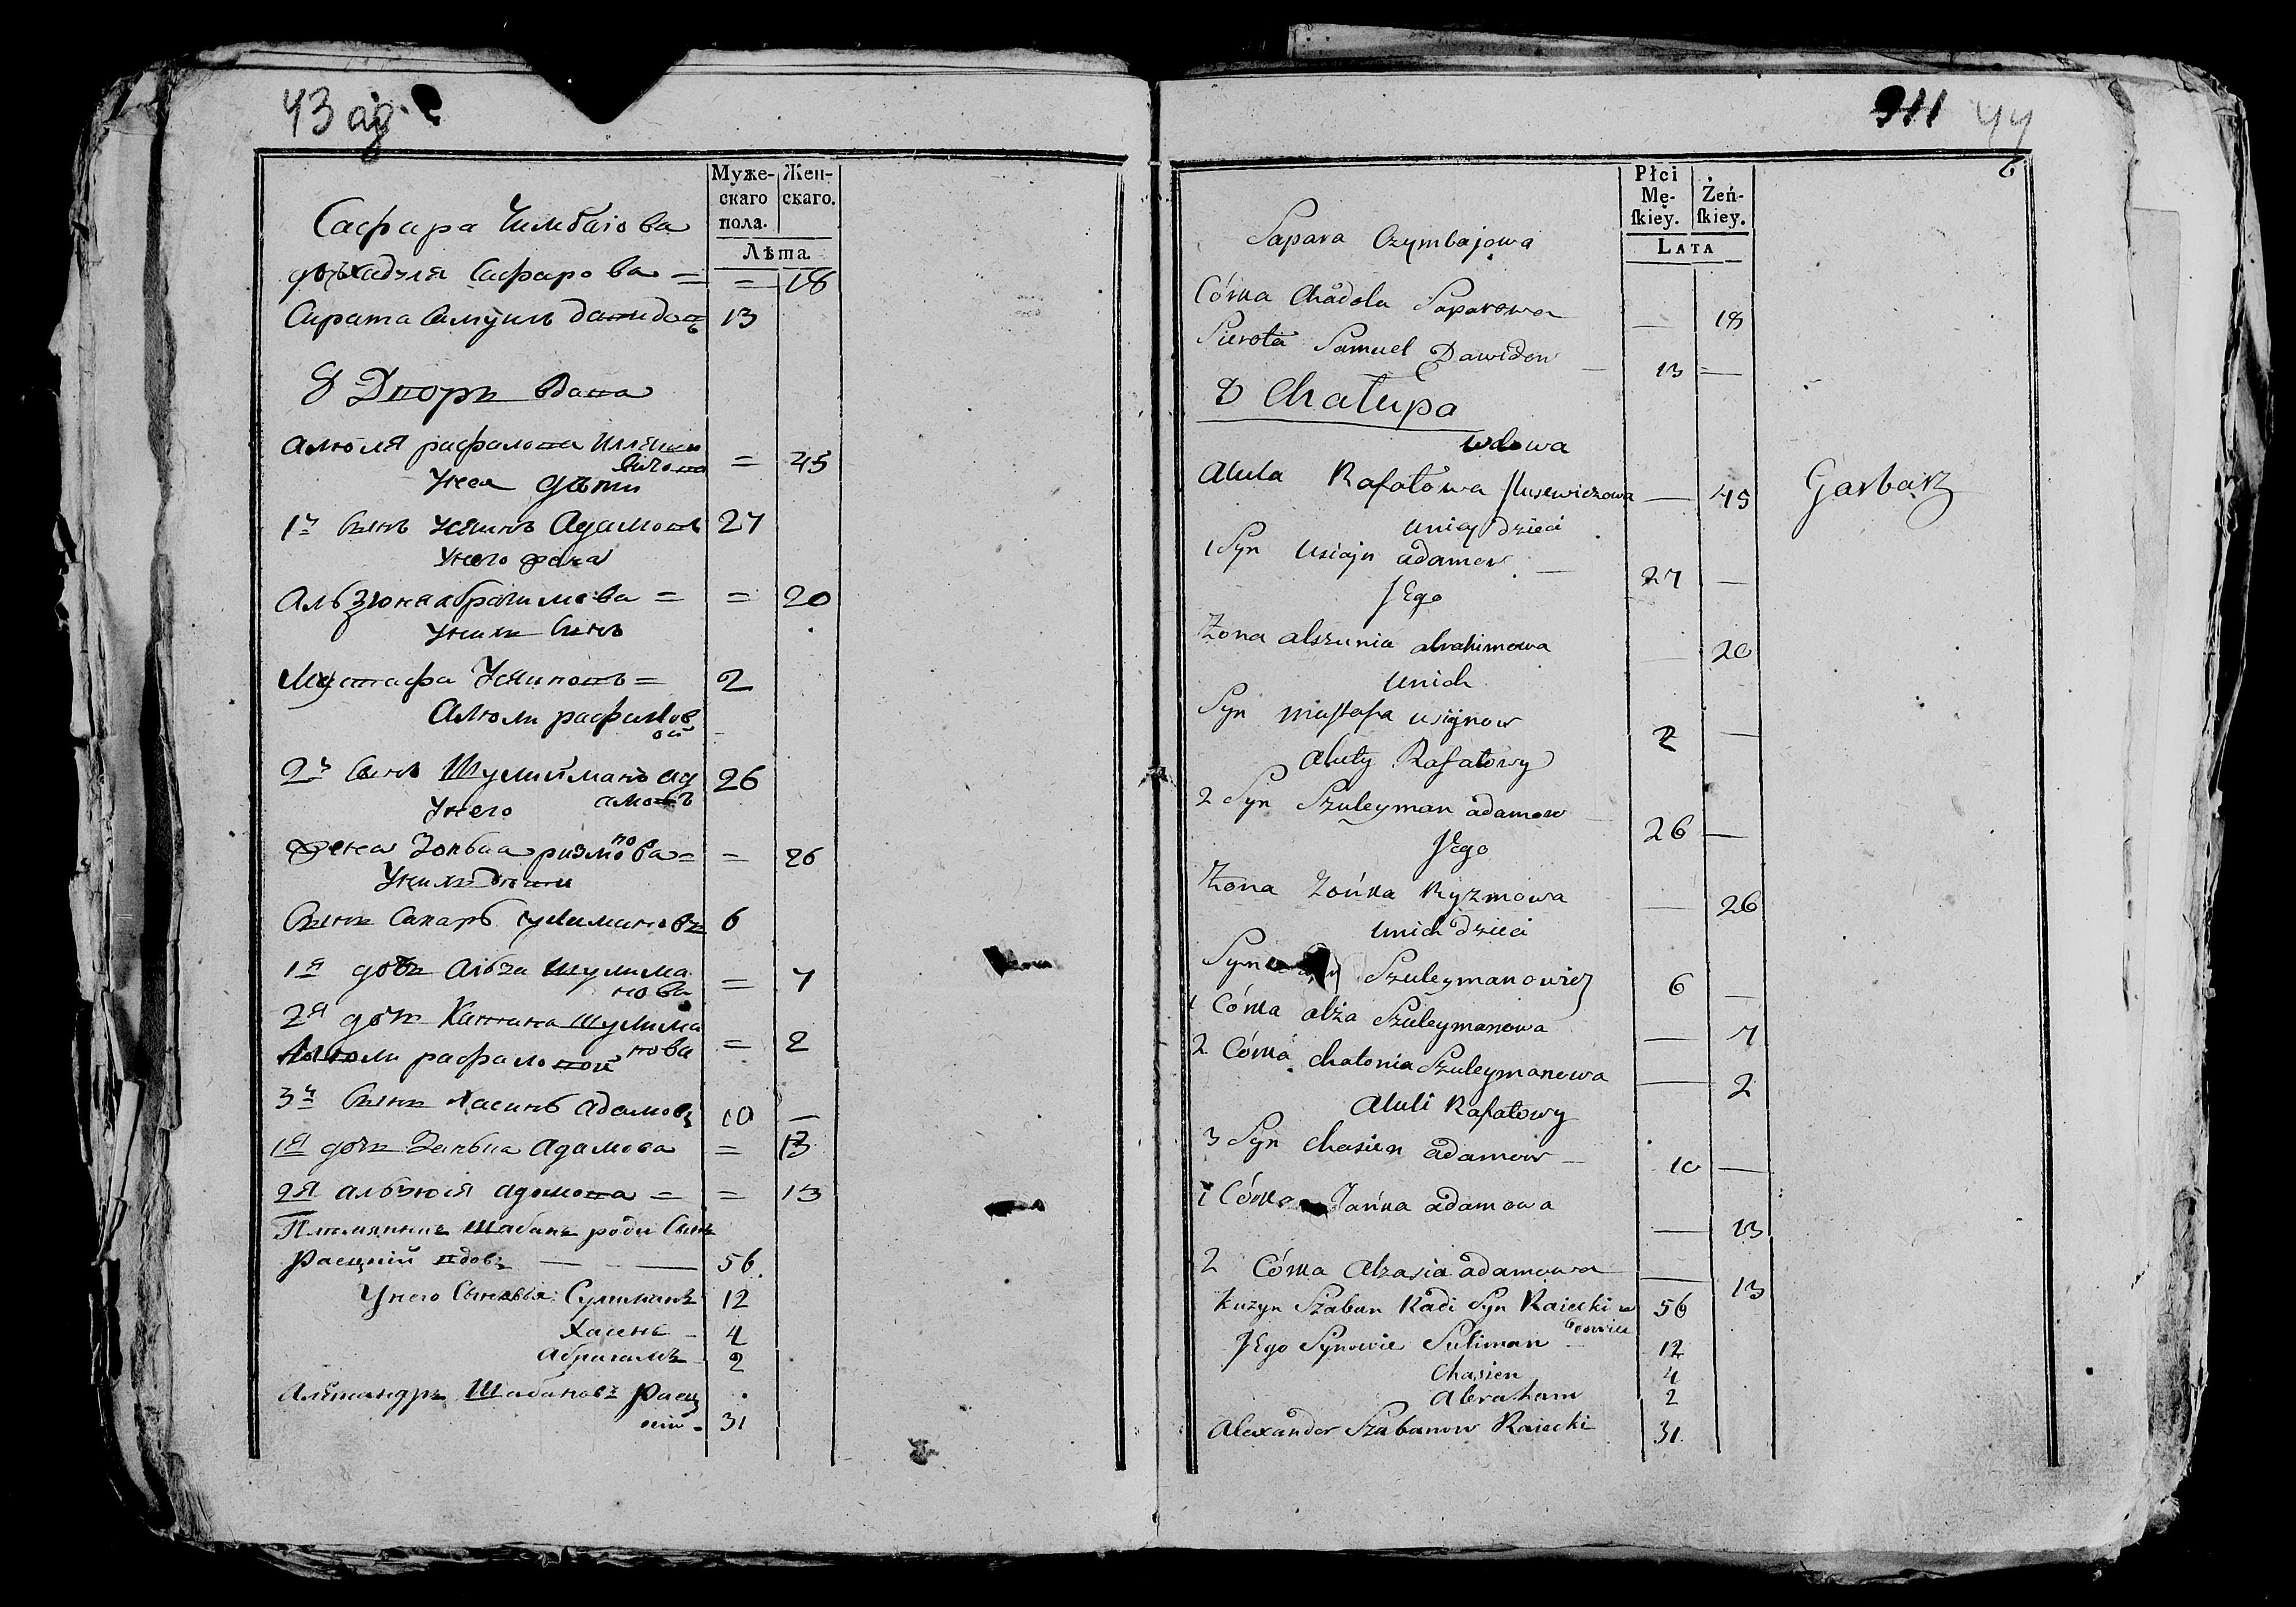 43 ад.
Муже-
скаго
пола.
Жен-
скаго.
Лѣта.
Сафара Чимбаіова
дочь Хадзля Сафарова = = 18
Сирота Самуилъ Давидовъ 13
8 Дворъ Вдова
Алюля рафалова Илляше
вичова = 45
У нея дѣти
1й Сынъ Усяинъ Адамовъ 27
У него жена
Альзюня абрагимова = = 20
У нихъ Сынъ
Мустафа Усяиновъ = 2
Алюли рафалов
ой
2й Сынъ Шулийманъ ад
амовъ 26
У него
жена Зонька ризмова = = 26
У нихъ дѣти
Сынъ Сапаръ сулимановъ 6
1я дочь Альза Шулима
нова = 7
2я дочь Хатюна Шулима
нова = 2
Алюли рафаловой
3й Сынъ Хасинъ адамовъ 10 —
1я дочь Занька Адамова = 13
2я альзюся адамова = = 13
Племянникъ Шабанъ ради Сынъ
Раецкій вдовъ — — 56
У него Сыновья Сулиманъ 12
Хасень 4
Абрагамъ 2
Александръ Шабановъ Раец
кій 31
44
6
Płci
Mę-
ſkiey.
Żeń-
ſkiey.
LATA
Sapara Czymbajowa
Córka Chadola Saparowa — 18
Sierota Samuel Dawidow — 13 —
8 Chałupa
wdowa
Alula Rafałowa Ilusewiczowa — 45 Garbarz
u niey dzieci
1 Syn Usiajn adamow — 27 —
JEgo
Żona alszunia abrahimowa — 20
u nich
Syn Mustafa usiynow 2 —
Aluły Rafałowy
2 Syn Szuleyman adamow 26 —
JEgo
Żona Zońka Ryzmowa — 26
u nich dzieci
Syn Szuleymanowicz 6 —
1 Córka alża Szuleymanowa — 7
2 Córka chatonia Szuleymanowa — 2
Aluli Rafałowy
3 Syn Chasien adamow — 10 —
1 Córka Zańka adamowa — 13
2 Córka Alzasia adamowa — 13
Kuzyn Szaban Radi Syn Raiecki 56
JEgo Synowie Suliman 12
Chasien 4
Abraham 2
Alexander Szabanow Raiecki 31